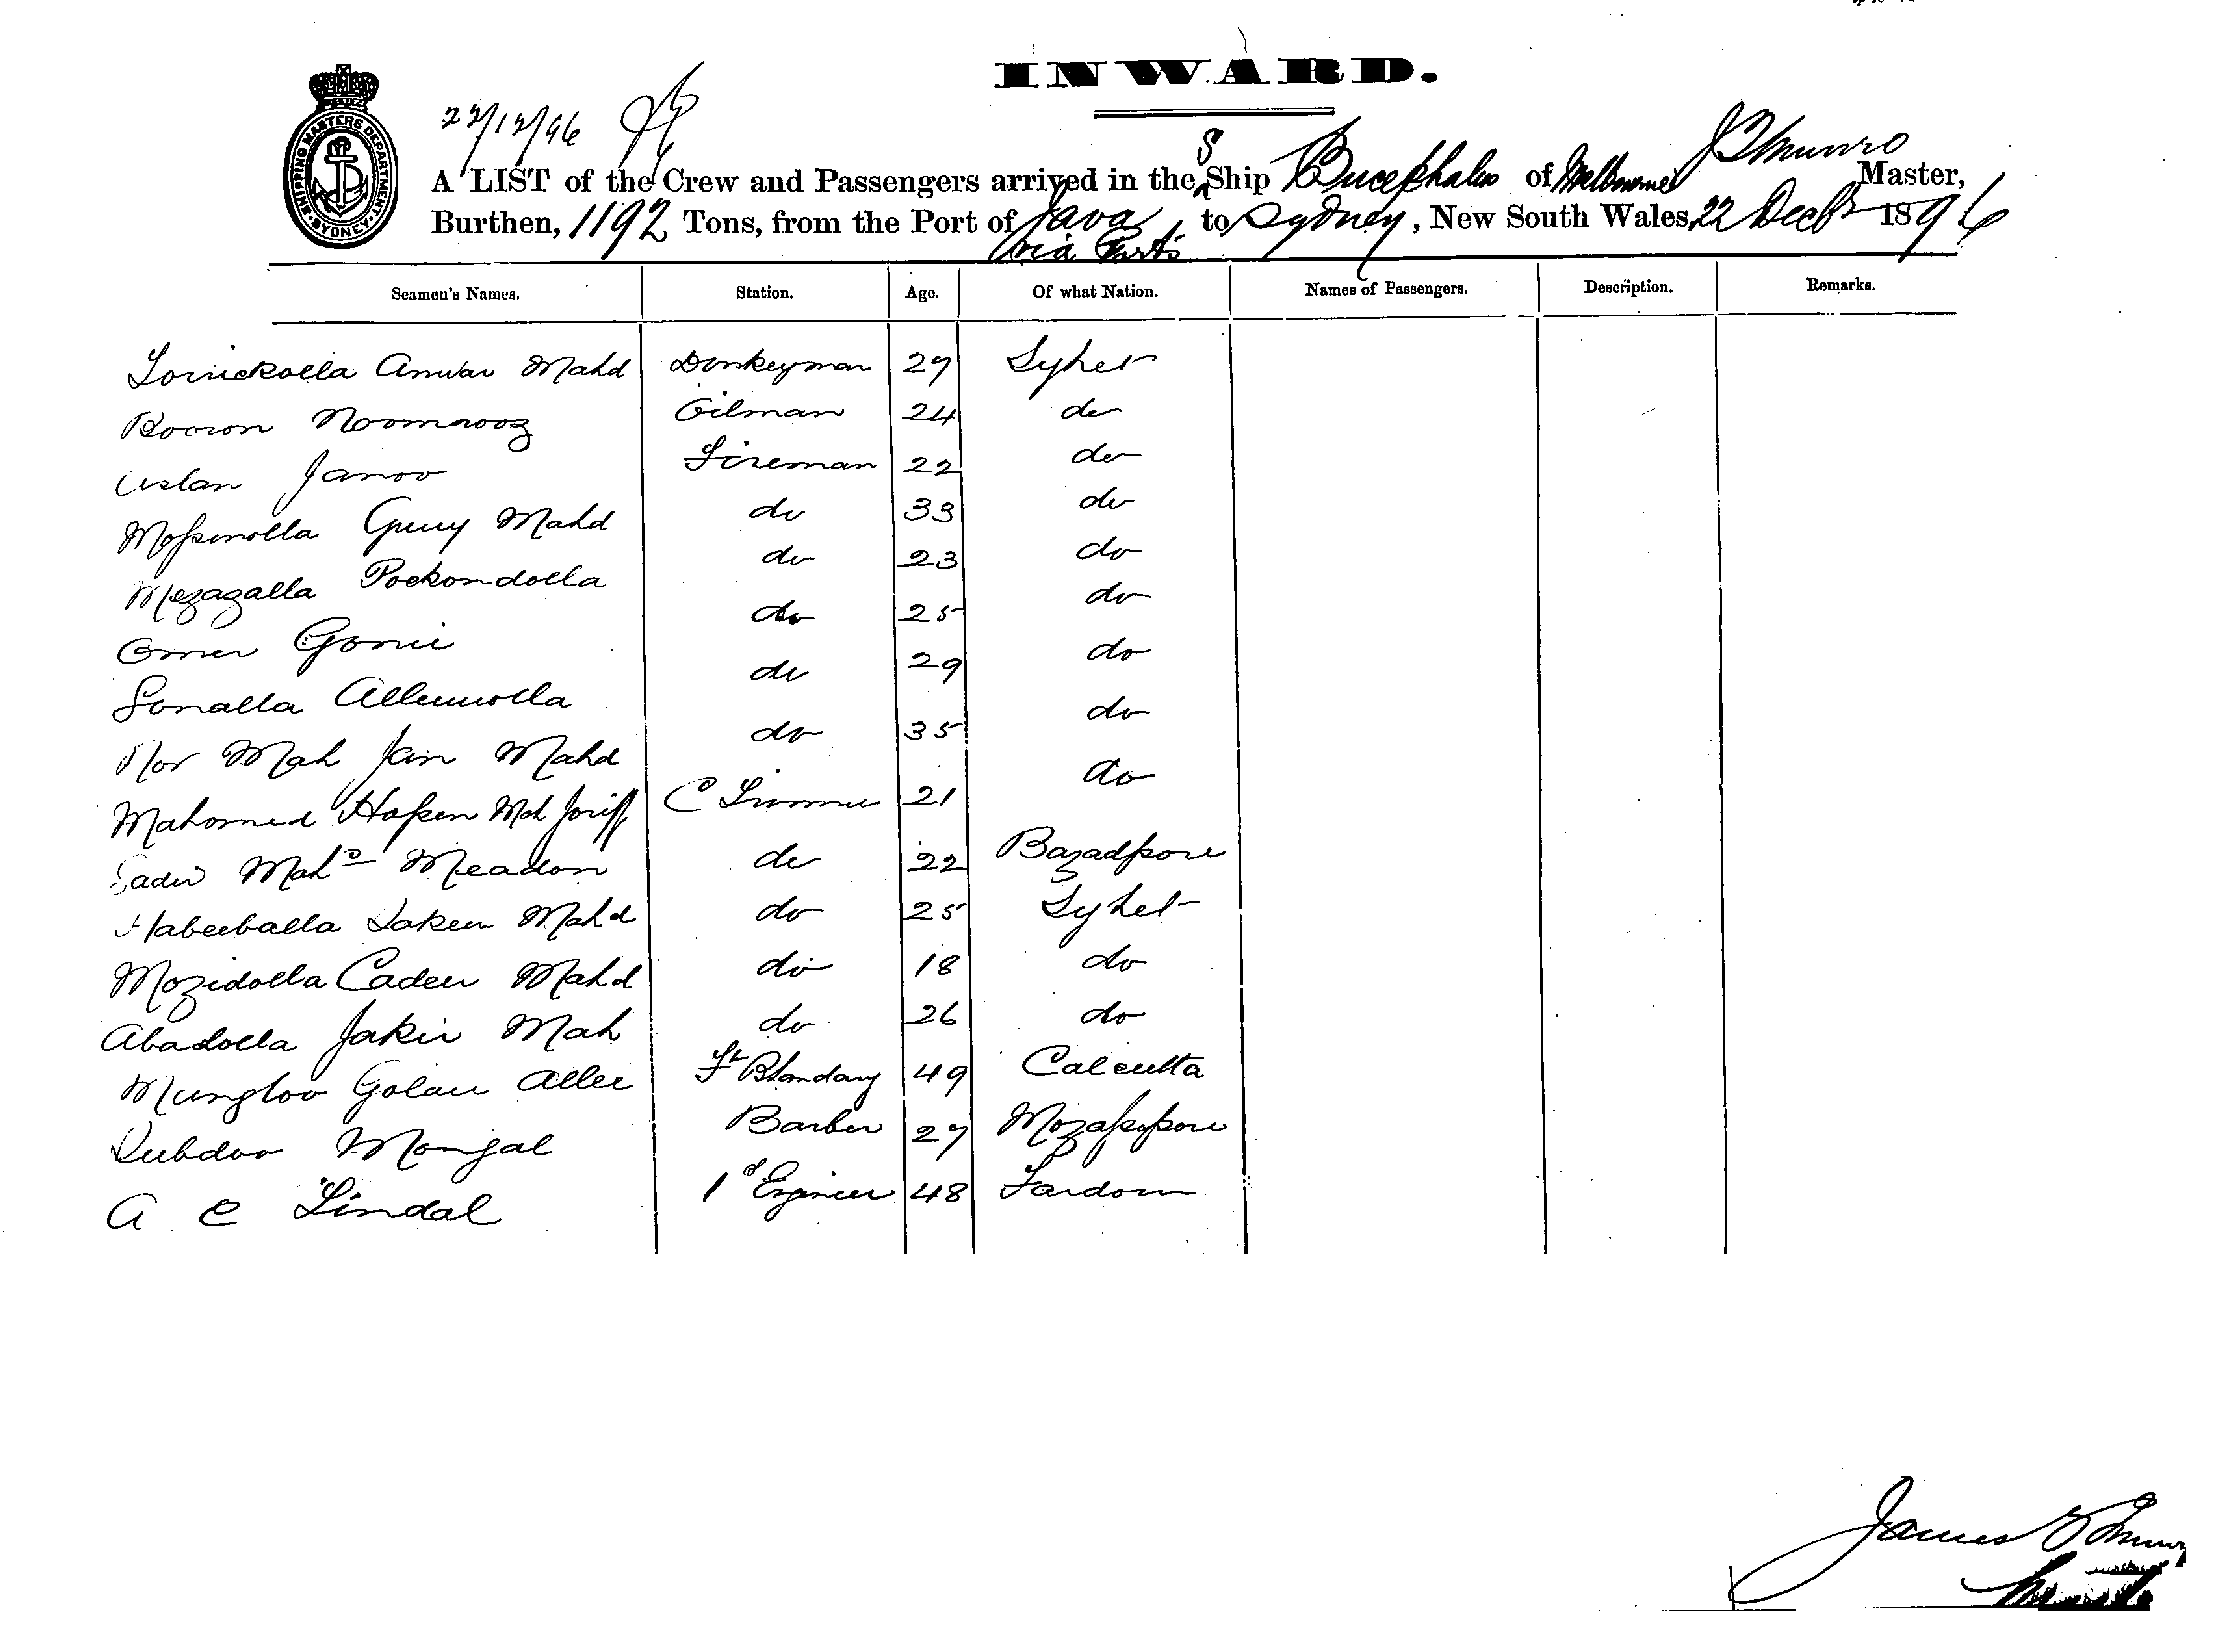 INWARD.
22/12/96
SHIPPING MASTERS DEPARTMENT SYDNEY
J Munro
A LIST of the Crew and Passengers arrived in the S Ship Bucephalus of Melbourne Master,
Burthen, 1192 Tons, from the Port of Java via Ports to Sydney, New South Wales, 22 Decbr 1896
Seamen's Names. Station. Age. Of what Nation. Names of Passengers. Description. Remarks.
Anwar Mahd Donkeyman 27 Syhet
Noomrooz Oilman 24 do
Uslan Janoo Fireman 22 do
Mossinolla Mahd do 33 do
Mezazalla Pockondolla do 23 do
Omer Gomie do 25 do
Sonalla do 29 do
Nor Mah Jan Mahd do 35 do
Mahomed Hassen Mah Joriff C Trimmer 21 do
Sadir Mahd Meadon do 22 Bazadpore
Habeeballa Saken Mahd do 25 Syhet
Mozidolla Cader Mahd do 18 do
Abadolla Jakir Mah do 26 do
Mungloo Golam Allee Ft Bhandary 49 Calcutta
Dubdoo Mongal Barber 27
A C Lindal 1st Engineer 48
James Munro